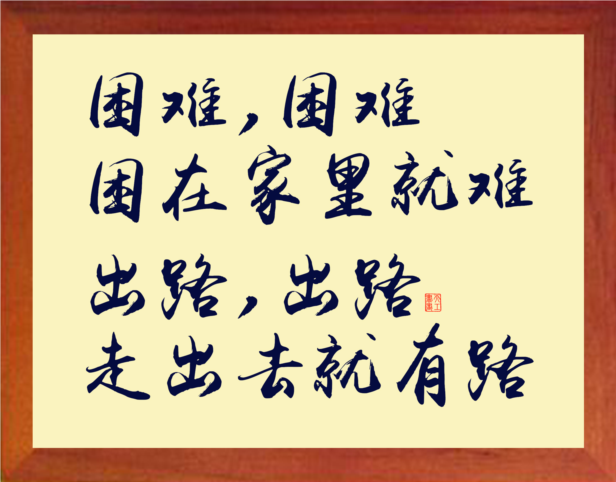 困难,困难
困在家里就难
出路,出路
走出去就有路